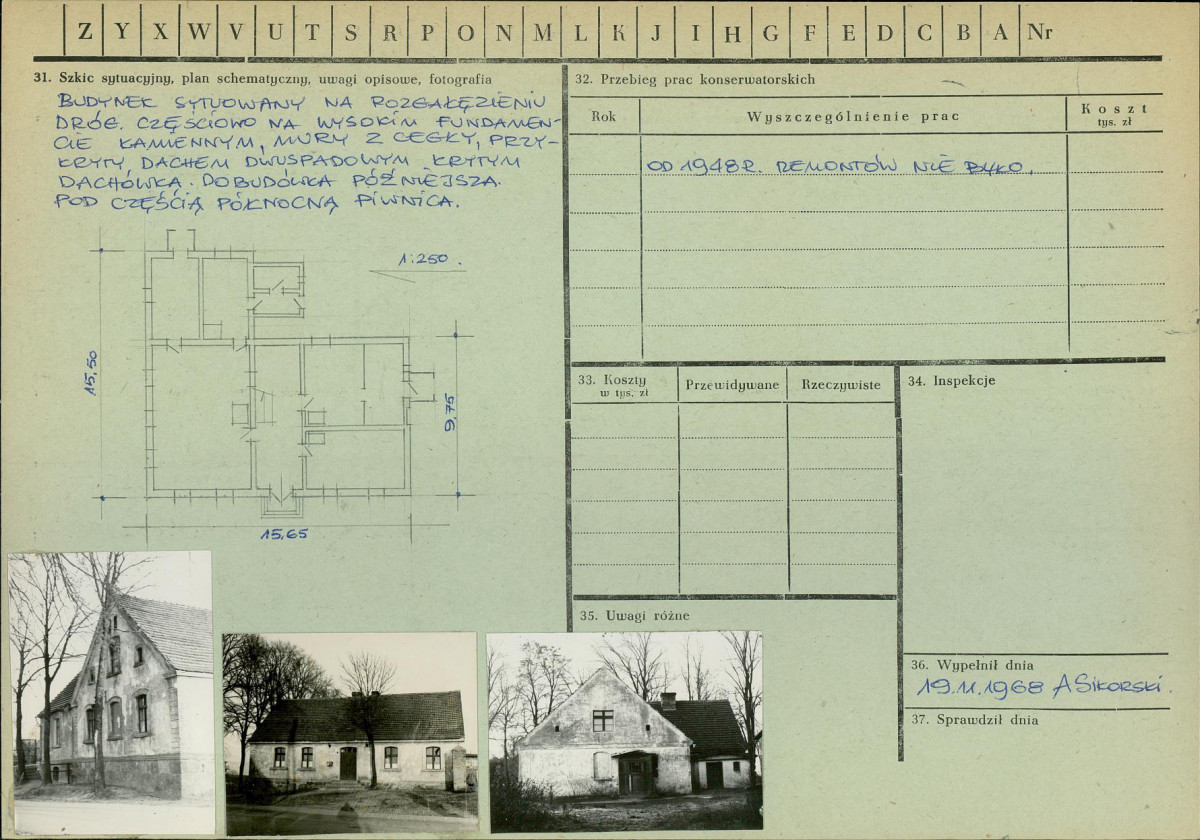 Z Y X W V U T S R P O N M L K J I H G F E D C B A Nr
31. Szkic sytuacyjny, plan schematyczny, uwagi opisowe, fotografia
BUDYNEK SYTUOWANY NA ROZGAŁĘZIENIU
DRÓG. CZĘŚCIOWO NA WYSOKIM FUNDAMEN-
CIE KAMIENNYM, MURY Z CEGŁY, PRZY-
KRYTY, DACHEM DWUSPADOWYM KRYTYM
DACHÓWKĄ. DOBUDÓWKA PÓŹNIEJSZA.
POD CZĘŚCIĄ PÓŁNOCNĄ PIWNICA.
1:250.
15,50
9,75
15,65
32. Przebieg prac konserwatorskich
Rok
Wyszczególnienie prac
Koszt
tys. zł
OD 1948 R. REMONTÓW NIE BYŁO.
33. Koszty
w tys. zł
Przewidywane
Rzeczywiste
34. Inspekcje
35. Uwagi różne
36. Wypełnił dnia
19.11.1968 ASIKORSKI.
37. Sprawdził dnia